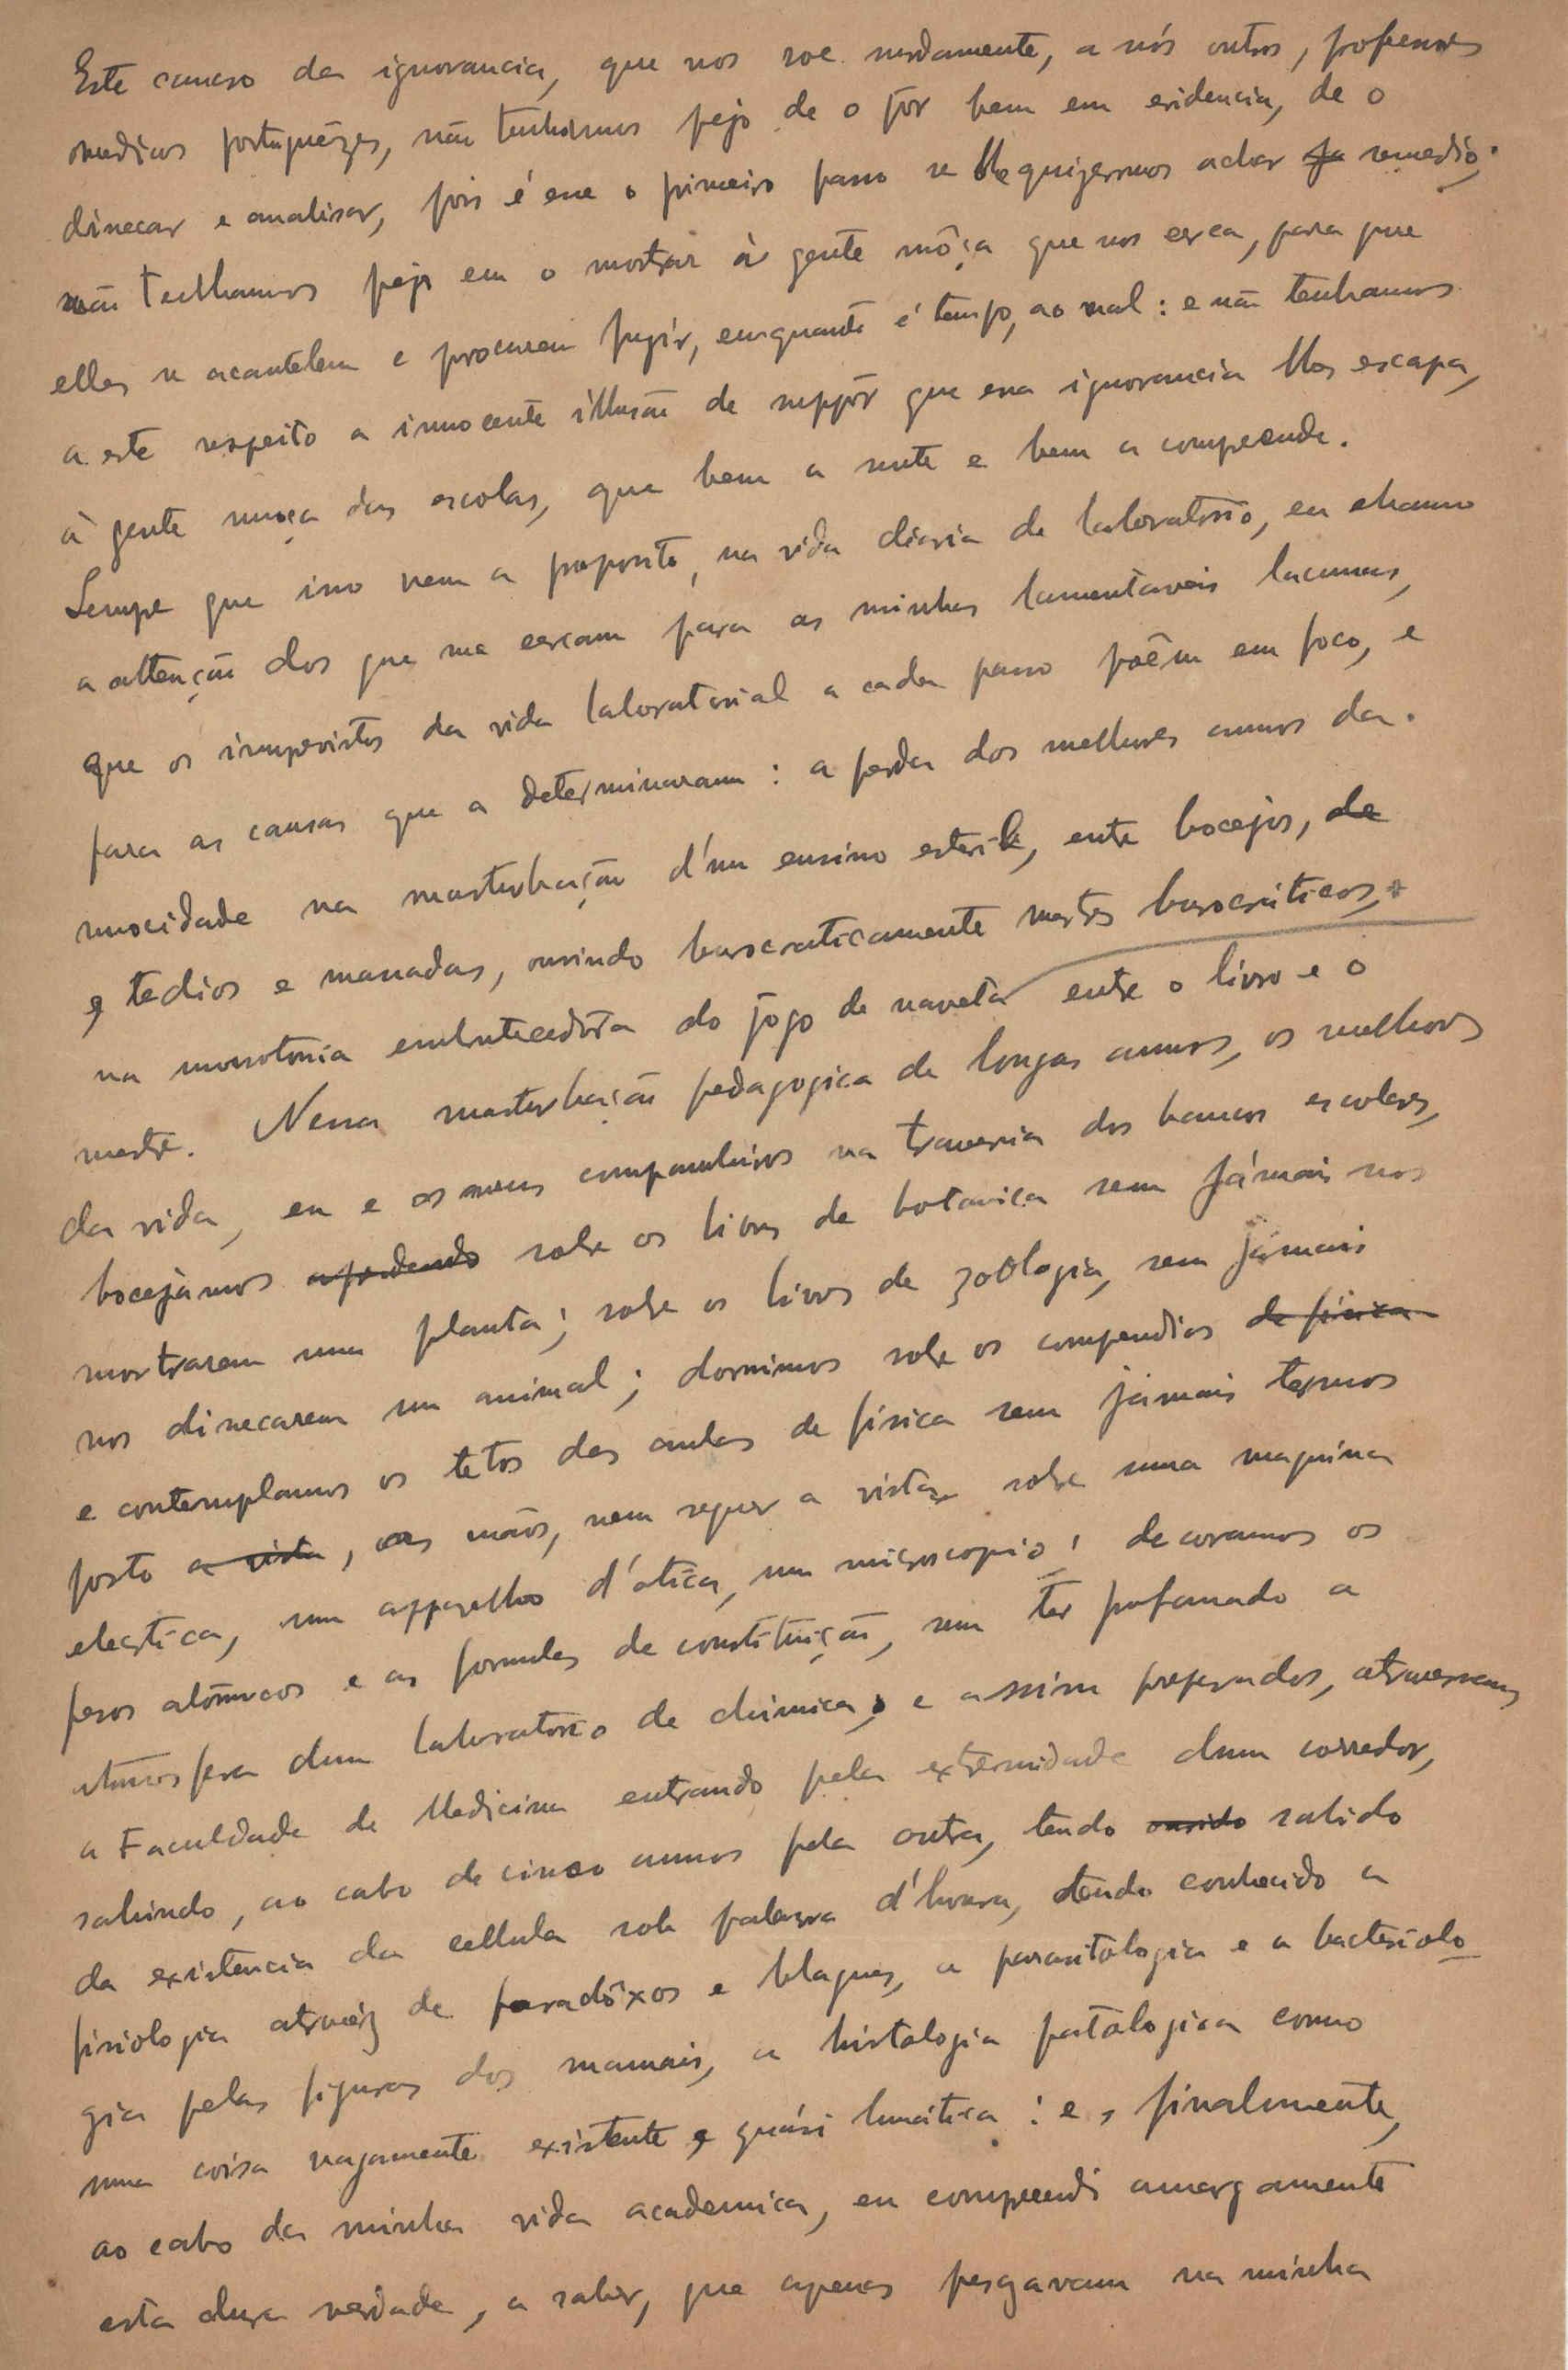 Este cancro da ignorancia, que nos roe surdamente, a nós outros, professores
medicos portuguêzes, não tenhâmos pejo de o pôr bem em evidencia, de o
dissecar e analisar, pois é esse o primeiro passo se lhe quizermos achar remedio;
não tenhamos pejo em o mostrar à gente môça que nos cerca, para que
elles se acautelem e procurem fugir, emquanto é tempo, ao mal: e não tenhamos
a este respeito a innocente illusão de suppôr que essa ignorancia lhes escapa,
à gente moça das escolas, que bem a sente e bem a compreende.
Sempre que isso vem a proposito, na vida diaria de laboratorio, eu chamo
a attenção dos que me cercam para as minhas lamentaveis lacunas,
que os imprevistos da vida laboratorial a cada passo põem em foco, e
para as causas que a determinaram: a perda dos melhores annos da
mocidade na masturbação d'um ensino esteril, entre bocejos, de
e tedios e massadas, ouvindo burocraticamente mestres burocráticos,
na monotonia embrutecedôra do jogo de naveta entre o livro e o
mestre. Nessa masturbação pedagogica de longos annos, os melhores
da vida, eu e os meus companheiros na travessia dos bancos escolares,
bocejámos aprendendo sobre os livros de botanica sem jámais nos
mostrarem uma planta; sobre os livros de zoologia, sem jámais
nos dissecarem um animal; dormimos sobre os compendios de física
e contemplamos os tetos das aulas de física sem jámais termos
posto a vista, as mãos, nem sequer a vista sobre uma maquina
electrica, um apparelho d'otica, um microscopio; decoramos os
pesos atômicos e as formulas de constituição, sem ter profanado a
atmosfera dum laboratorio de chimica; e assim preparados, atravessamos
a Faculdade de Medicina entrando pela extremidade dum corredor,
sahindo, ao cabo de cinco annos pela outra, tendo ouvido sabido
da existencia da cellula sob palavra d'honra, tendo conhecido a
fisiologia atravéz de paradôxos e blagues, a parasitologia e a bacteriolo
gia pelas figuras dos manuais, a histologia patologica como
uma coisa vagamente existente e quási lunática: e, finalmente,
ao cabo da minha vida academica, eu compreendi amargamente
esta dura verdade, a saber, que apenas pesavam na minha